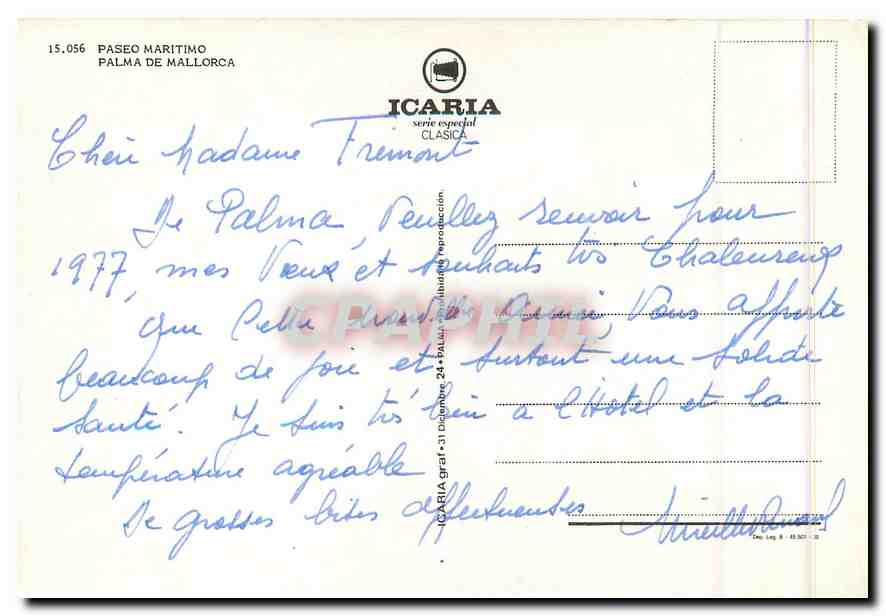 15.056 PASEO MARITIMO
PALMA DE MALLORCA
ICARIA
serie especial
CLASICA
Chère Madame Frémont
De Palma, Veuillez recevoir pour
1977, mes Vœux et souhaits très Chaleureux
que cette nouvelle année, Vous apporte
beaucoup de joie et surtout une solide
santé. Je suis très bien à l'Hôtel et la
température agréable
De grosses bises affectueuses
ICARIA graf • 31 Diciembre, 24 • PALMA • Prohibida la reproducción.
Dep. Leg. B -
CPAPHIL